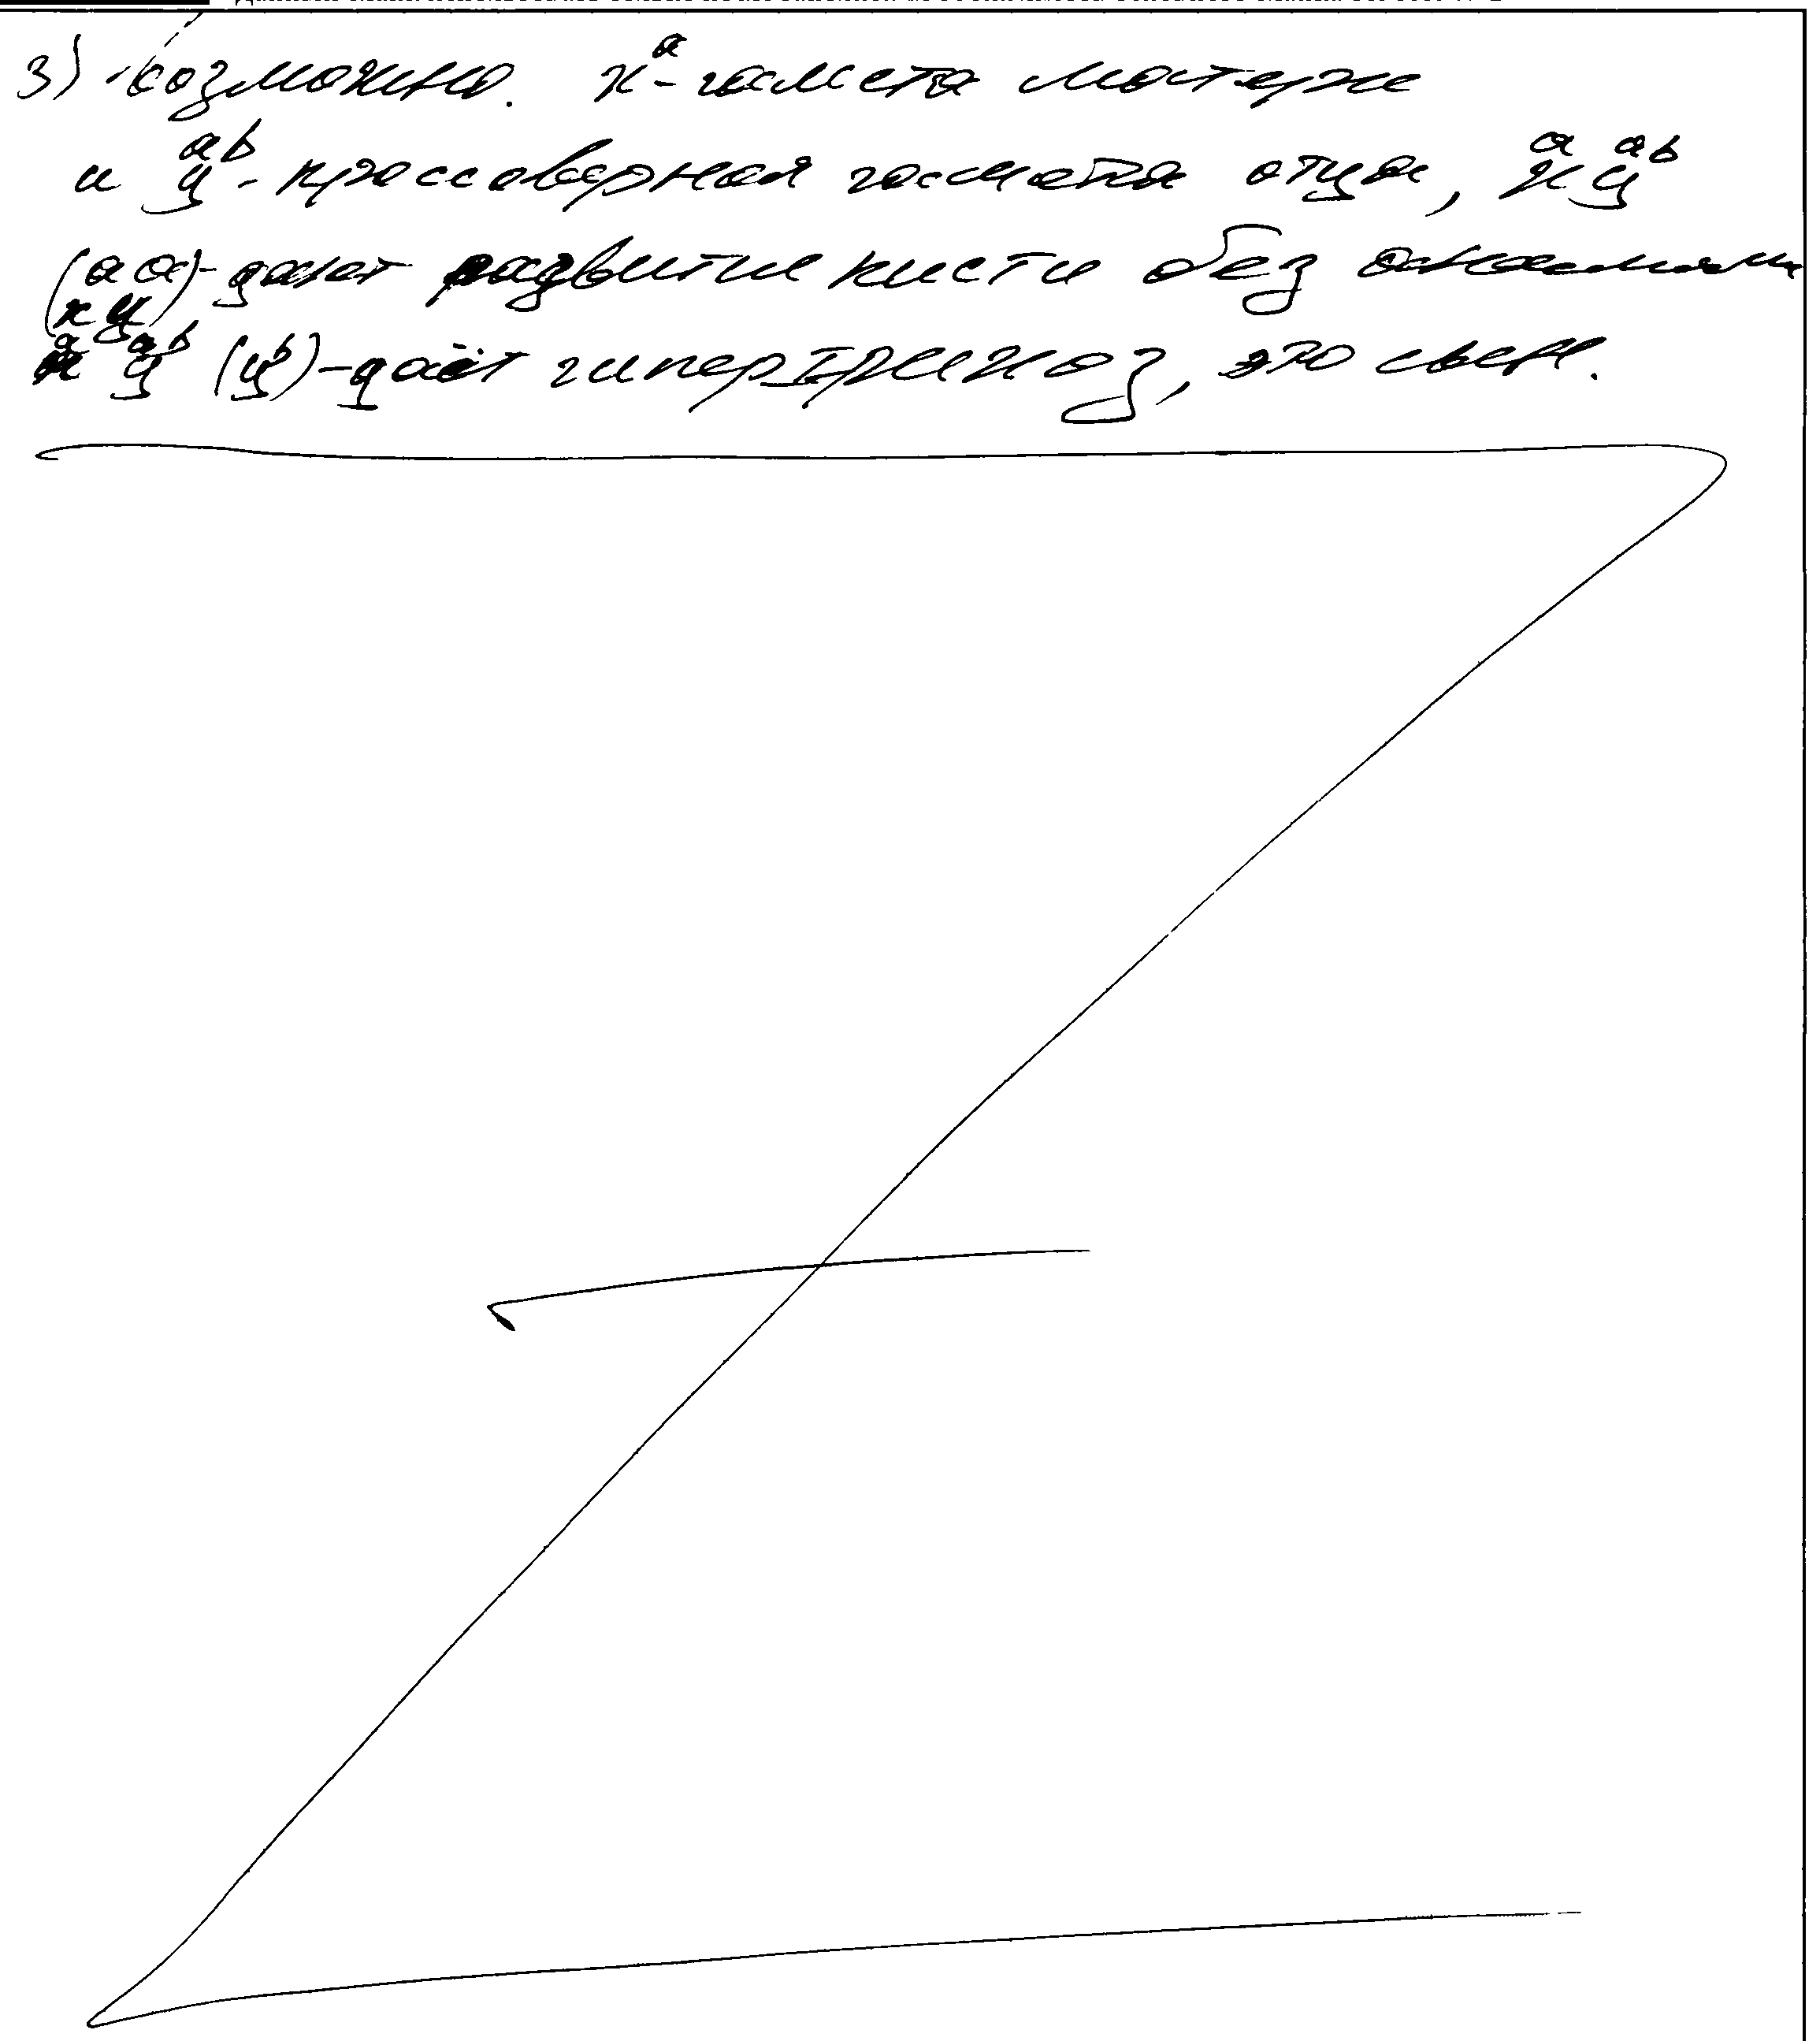 3) возможно. x^a - гамета матери
и y^ab - кроссоверная гамета отца, x^a y^ab
(aa) - дают развитие кисти без аномалии
x^a y^ab (y^b) - даёт гипертрихоз, это сын.